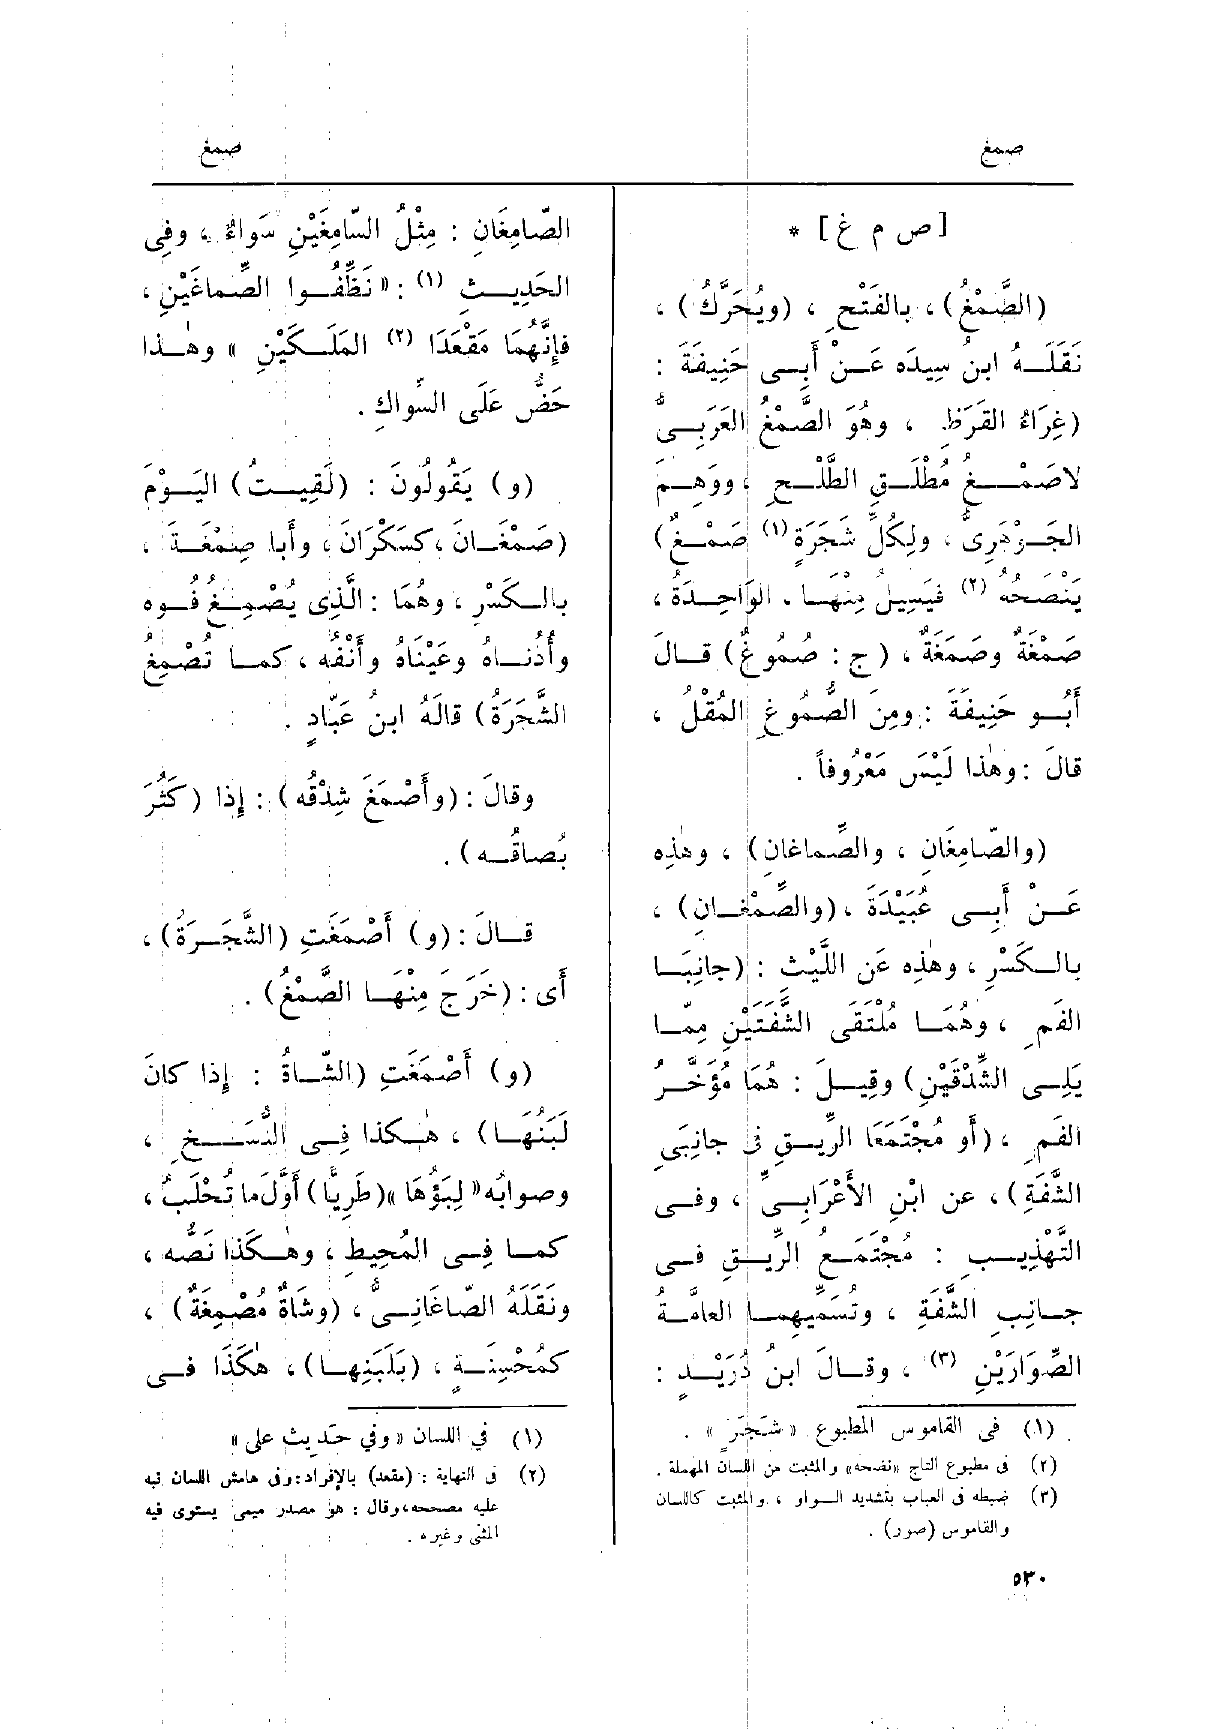 صمغ
صمغ
[ص م غ] *
(الصَّمْغُ) ، بالفَتْحِ ، (ويُحَرَّكُ) ،
نَقَلَـهُ ابنُ سِيدَه عَـنْ أَبِى حَنِيفَةَ :
(غِرَاءُ القَرَظِ ، وهُوَ الصَّمْغُ العَرَبِىُّ
لاصَمْـغُ مُطْلَـقِ الطَّلْـحِ ، ووَهِـمَ
الجَـوْهَرِىُّ ، ولِكُلِّ شَجَرَةٍ (١) صَمْـغٌ)
يَنْضَحُهُ (٢) فيَسِيلُ مِنْهَـا . الوَاحِـدَةُ ،
صَمْغَةٌ وصَمَغَةٌ ، (ج : صُمُوغٌ) قـالَ
أَبُـو حَنِيفَةَ : ومِنَ الصُّمُوغِ المُقْلُ ،
قالَ : وهٰذا لَيْسَ مَعْرُوفاً .
(والصّامِغَانِ ، والصِّماغانِ) ، وهٰذِه
عَـنْ أَبِـى عُبَيْدَةَ ، (والصِّمْغَـانِ) ،
بالـكَسْرِ ، وهٰذِه عَنِ اللَّيْثِ : (جانِبَـا
الفَمِ ، وهُمَـا مُلْتَقَى الشَّفَتَيْنِ مِمّـا
يَلِـى الشِّدْقَيْنِ) وقِيـلَ : هُمَا مُؤَخَّـرُ
الفَمِ ، (أَو مُجْتَمَعَا الرِّيـقِ فى جانِبَىِ
الشَّفَةِ) ، عن ابْنِ الأَعْرَابِـىِّ ، وفـى
التَّهْذِيـبِ : مُجْتَمَـعُ الرِّيـقِ فـى
جـانِبِ الشَّفَةِ ، وتُسَمِّيهِمـا العامَّـةُ
الصِّوَارَيْنِ (٣) ، وقـالَ ابنُ دُرَيْـدٍ :
(١) فى القاموس المطبوع « شَجَرٍ » .
(٢) فى مطبوع التاج «نفضحه» والمثبت من اللسان المهملة .
(٣) ضبطه فى العباب بتشديد الـواو ، والمثبت كاللسان
والقاموس (صور) .
٥٣٠
الصّامِغَانِ : مِثْلُ السّامِغَيْنِ سَواءٌ ، وفِى
الحَدِيـثِ (١) : « نَظِّفُـوا الصِّماغَيْنِ ،
فإِنَّهُمَا مَقْعَدَا (٢) المَلَـكَيْنِ » وهٰـذا
حَضٌّ عَلَى السِّواكِ .
(و) يَقُولُونَ : (لَقِيـتُ) اليَـوْمَ
(صَمْغَـانَ ، كسَكْرَانَ ، وأَبا صِمْغَـةَ ،
بالـكَسْرِ ، وهُمَا : الَّذِى يَصْمِـغُ فُـوه
وأُذُنـاهُ وعَيْنَاهُ وأَنْفُه ، كمـا تُصْمِغُ
الشَّجَرَةُ) قالَهُ ابنُ عَبّادٍ .
وقالَ : (وأَصْمَغَ شِدْقُه) : إِذا (كَثُرَ
بُصاقُـه) .
قـالَ : (و) أَصْمَغَتِ (الشَّجَـرَةُ) ،
أَى : (خَرَجَ مِنْهَـا الصَّمْغُ) .
(و) أَصْمَغَتِ (الشّـاةُ : إِذا كانَ
لَبَنُهَـا) ، هٰـكذا فِـى النُّسَـخِ ،
وصوابُه « لِبَؤُهَا » (طَرِيًّا) أَوَّلَ ما تُحْلَبُ ،
كمـا فِـى المُحِيطِ ، وهٰـكَذا نَصُّه ،
ونَقَلَهُ الصّاغَانِـىُّ ، (وشَاةٌ مُصْمِغَةٌ) ،
كمُحْسِنَـةٍ ، (بَلَبَنِهـا) ، هٰكَذَا فـى
(١) فى اللسان « وفي حديث على »
(٢) فى النهاية : (مقعد) بالإفراد : وفى هامش اللسان نبه
عليه مصححه ، وقال : هو مصدر ميمى يستوى فيه
المثنى وغيره .